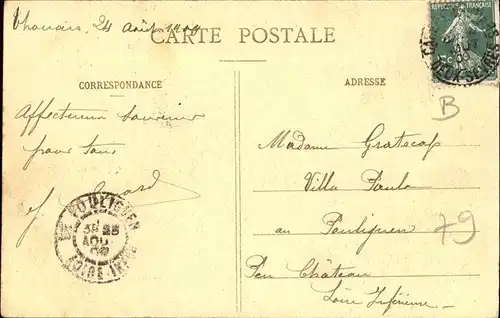 Thouars, 24 Août
CARTE POSTALE
REPUBLIQUE FRANÇAISE
CORRESPONDANCE
ADRESSE
Affectueux souvenir
pour tous
Madame Gratecap
Villa Paula
au Pouliguen
Château
Loire Inférieure
LE POULIGUEN
25
AOU
LOIRE-INFRE
B
79